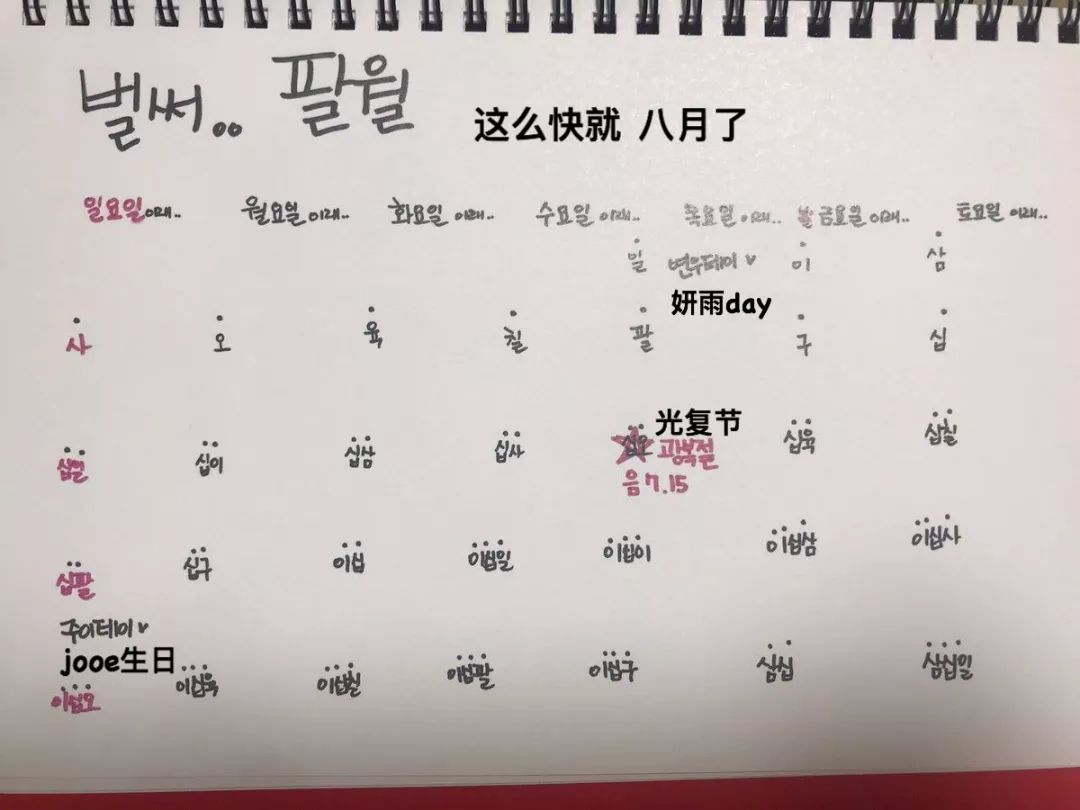 벌써.. 팔월 这么快就 八月了
일요일이래.. 월요일이래.. 화요일 이래.. 수요일 이래.. 목요일 이래.. 금요일이래.. 토요일 이래..
일 변우데이 이 삼
妍雨day
사 오 육 칠 팔 구 십
光复节
십일 십이 십삼 십사 십오 광복절 십육 십칠
음 7.15
십팔 십구 이십 이십일 이십이 이십삼 이십사
주이데이
jooe生日
이십오 이십육 이십칠 이십팔 이십구 삼십 삼십일